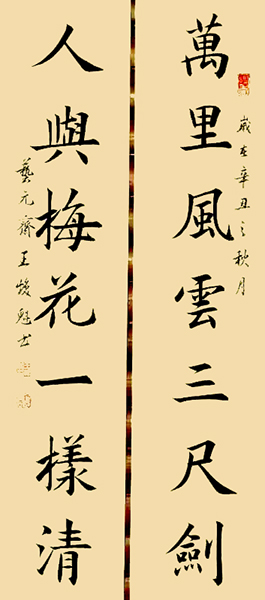 萬里風雲三尺劍
歲在辛丑之秋月
人與梅花一樣清
藝元齋王悛魁书